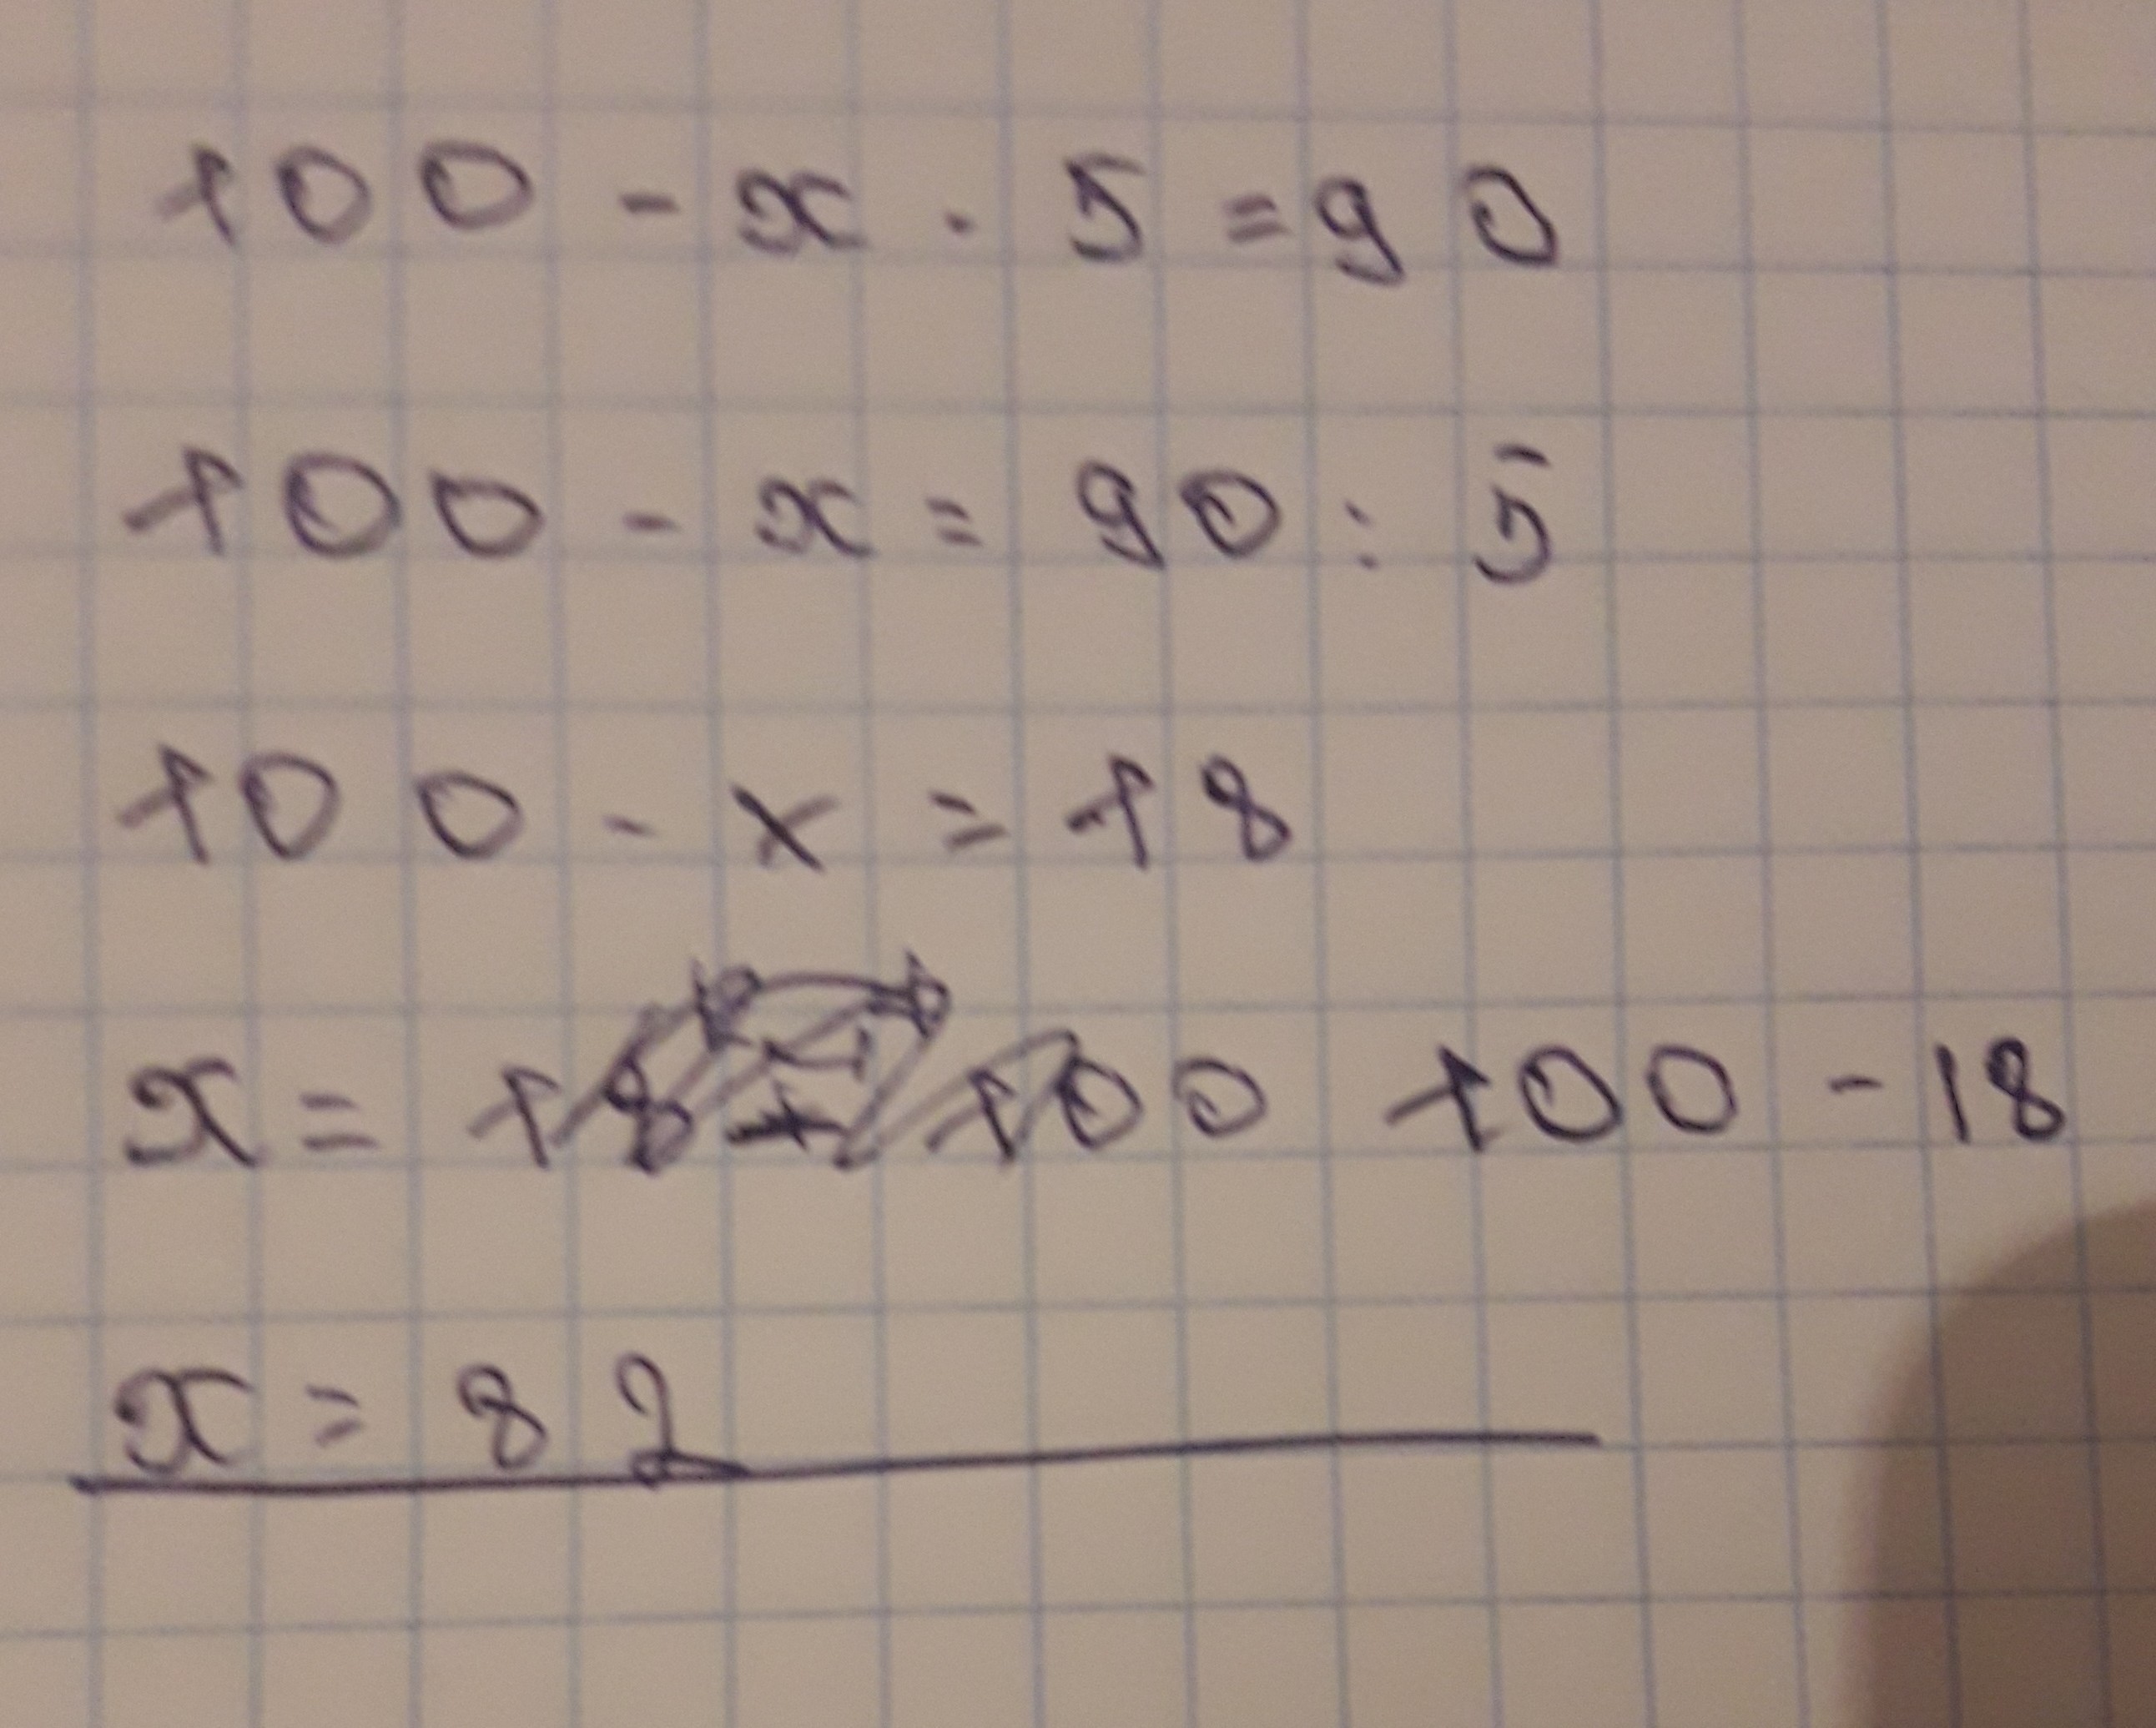 100 - x · 5 = 90
100 - x = 90 : 5
100 - x = 18
x = 100 - 18
x = 82